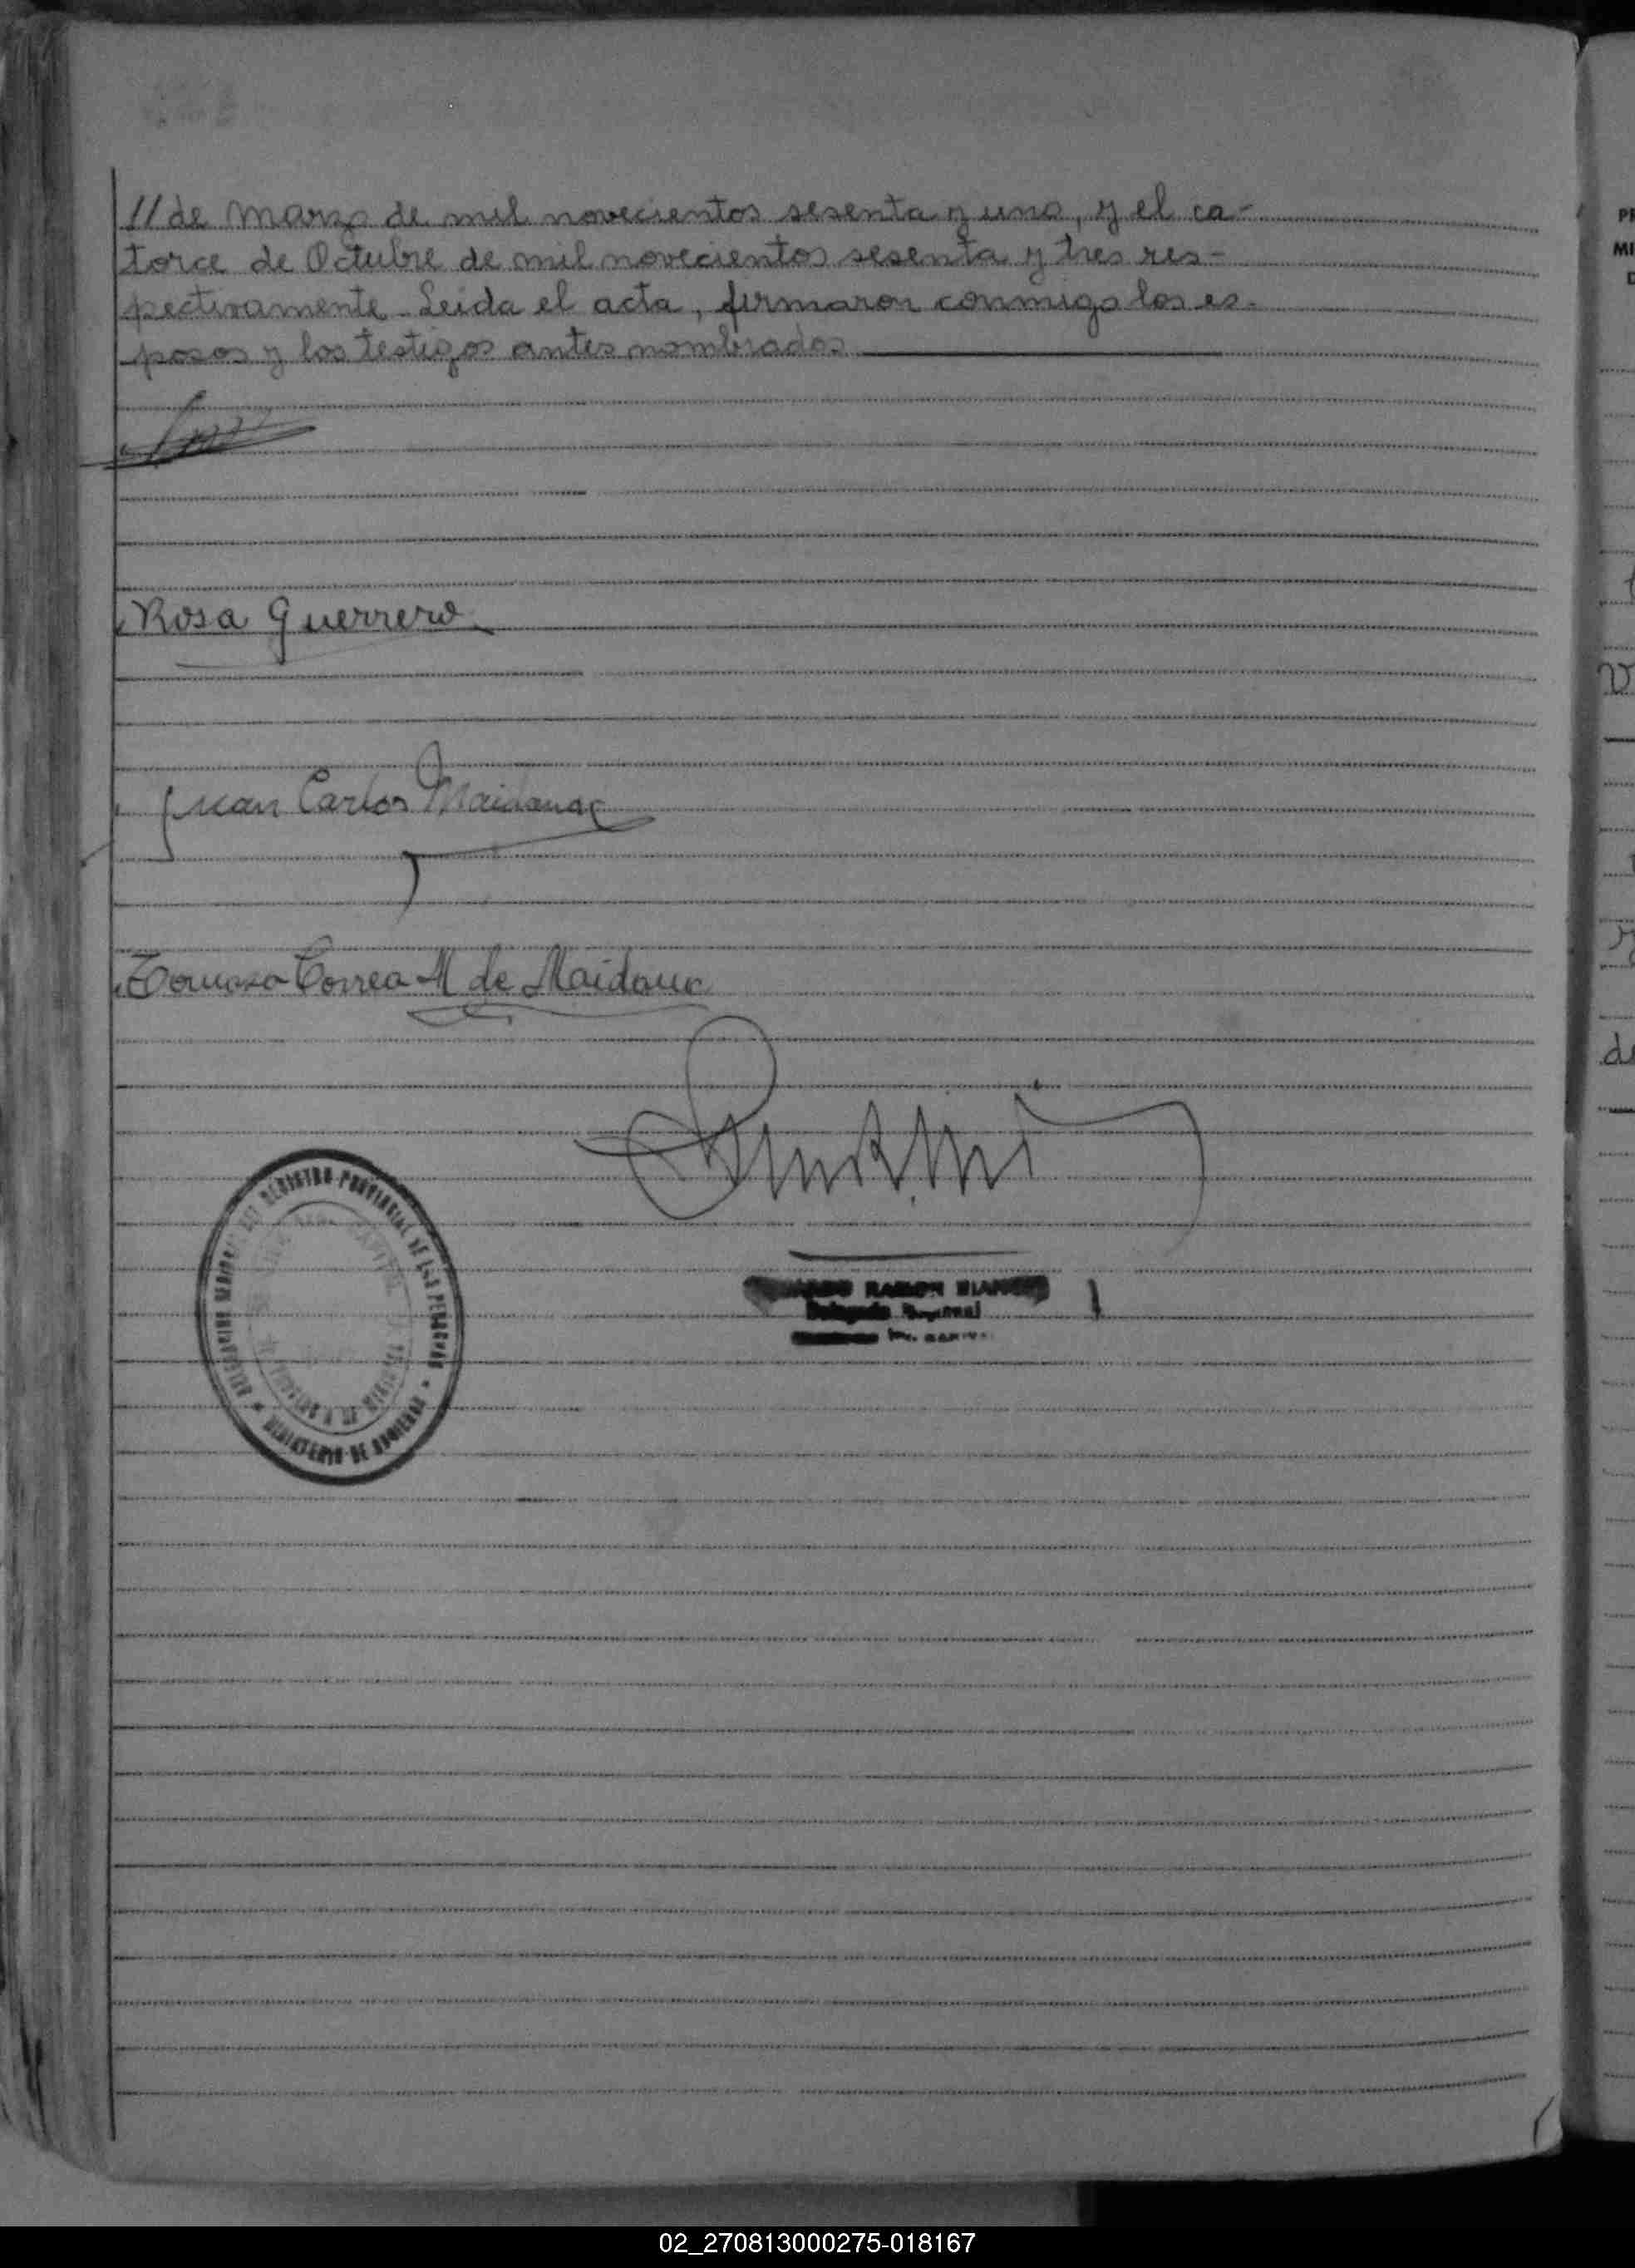 //de Marzo de mil novecientos sesenta y uno, y el ca-
torce de Octubre de mil novecientos sesenta y tres res-
pectivamente. Leida el acta, firmaron conmigo los es-
posos y los testigos antes nombrados
Rosa Guerrero
Juan Carlos Maidana
Correa M de Maidana
REGISTRO PROVINCIAL DE LAS PERSONAS
MINISTERIO DE GOBIERNO
RAMON
Delegado Regional
PR
MI
D
02_270813000275-018167